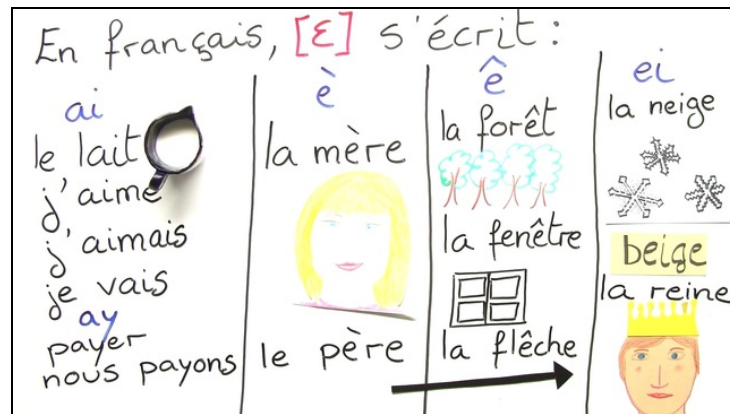 En français, [ɛ] s'écrit :
ai
le lait
j'aime
j'aimais
je vais
ay
payer
nous payons
è
la mère
le père
ê
la forêt
la fenêtre
la flêche
ei
la neige
beige
la reine